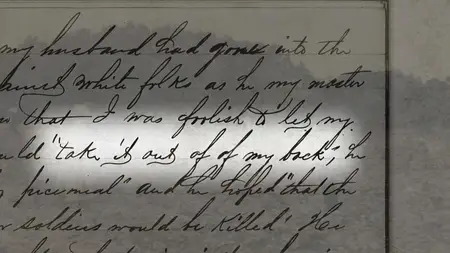 my husband had gone into the
against white folks as he my master
that I was foolish to let my
"take it out of of my back", he
picemeal" and he hoped "that the
soldiers would be killed". He